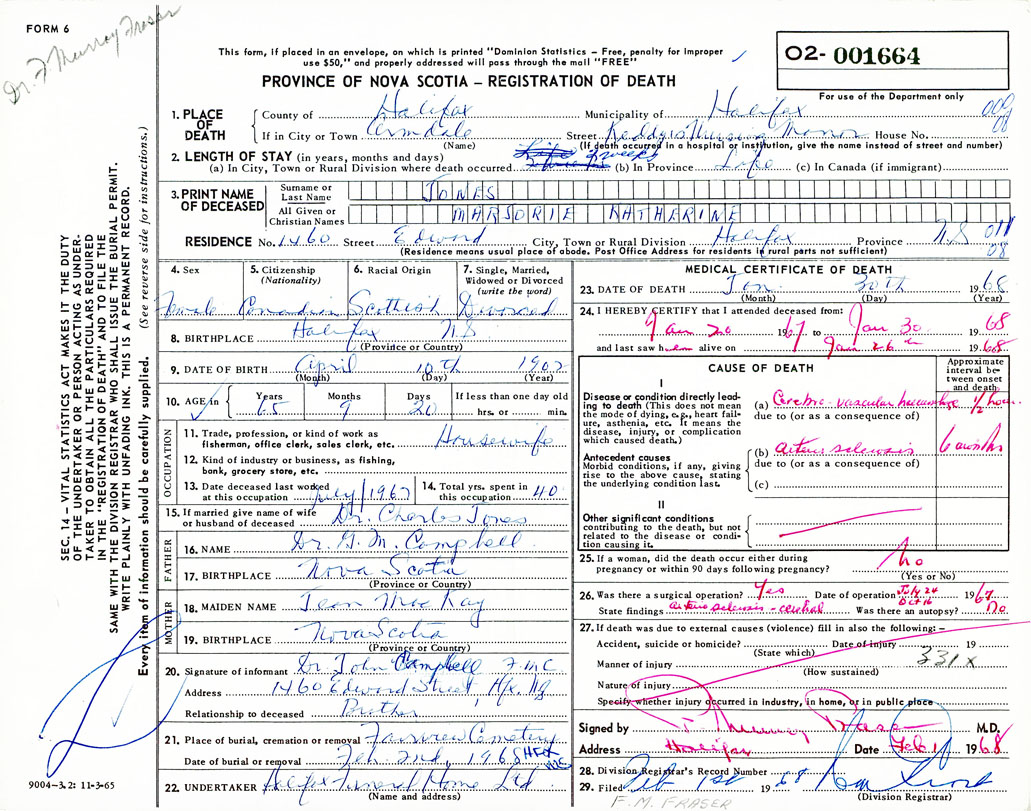 FORM 6
Dr. F Murray Fraser
This form, if placed in an envelope, on which is printed "Dominion Statistics – Free, penalty for improper
use $50," and properly addressed will pass through the mail "FREE"
O2- 001664
PROVINCE OF NOVA SCOTIA – REGISTRATION OF DEATH
For use of the Department only
1. PLACE OF DEATH
County of Halifax Municipality of Halifax 009
If in City or Town Armdale Street Nursing Manor House No. 08
(Name) (If death occurred in a hospital or institution, give the name instead of street and number)
2. LENGTH OF STAY (in years, months and days)
(a) In City, Town or Rural Division where death occurred weeks (b) In Province Life (c) In Canada (if immigrant)
3. PRINT NAME OF DECEASED
Surname or Last Name JONES
All Given or Christian Names MARJORIE KATHERINE
RESIDENCE No. 1460 Street Edward City, Town or Rural Division Halifax Province N.S 011
(Residence means usual place of abode. Post Office Address for residents in rural parts not sufficient) 08
4. Sex Female
5. Citizenship (Nationality) Canadian
6. Racial Origin Scottish
7. Single, Married, Widowed or Divorced (write the word) Divorced
8. BIRTHPLACE Halifax N.S
(Province or Country)
9. DATE OF BIRTH April 10th 1902
(Month) (Day) (Year)
10. AGE in Years Months Days If less than one day old
65 9 20 hrs. or min.
OCCUPATION
11. Trade, profession, or kind of work as
fisherman, office clerk, sales clerk, etc. Housewife
12. Kind of industry or business, as fishing,
bank, grocery store, etc.
13. Date deceased last worked
at this occupation July/1967
14. Total yrs. spent in
this occupation 40
15. If married give name of wife
or husband of deceased Dr. Charles Jones
FATHER
16. NAME Dr. G. M. Campbell
17. BIRTHPLACE Nova Scotia
(Province or Country)
MOTHER
18. MAIDEN NAME Jean MacKay
19. BIRTHPLACE Nova Scotia
(Province or Country)
20. Signature of informant Dr. John Campbell
Address 1460 Edward Street Hfx. NS
Relationship to deceased Brother
21. Place of burial, cremation or removal Fairview Cemetery
Date of burial or removal Feb. 2nd, 1968 HFX
22. UNDERTAKER Halifax Funeral Home Ltd
(Name and address)
MEDICAL CERTIFICATE OF DEATH
23. DATE OF DEATH Jan 30th 1968
(Month) (Day) (Year)
24. I HEREBY CERTIFY that I attended deceased from:
Jan 20 1967 to Jan 30 1968
and last saw h alive on Jan 26th 1968
CAUSE OF DEATH
Approximate interval between onset and death
I
Disease or condition directly leading to death (This does not mean the mode of dying, e.g., heart failure, asthenia, etc. It means the disease, injury, or complication which caused death.)
(a) Cerebro-vascular hemorrhage 1/2 hour
due to (or as a consequence of)
Antecedent causes
Morbid conditions, if any, giving rise to the above cause, stating the underlying condition last.
(b) arterio sclerosis 6 months
due to (or as a consequence of)
(c)
II
Other significant conditions
contributing to the death, but not related to the disease or condition causing it.
25. If a woman, did the death occur either during
pregnancy or within 90 days following pregnancy? No
(Yes or No)
26. Was there a surgical operation? Yes Date of operation July 24 Oct 16 1967
State findings arterio sclerosis - cerebral Was there an autopsy? No
27. If death was due to external causes (violence) fill in also the following: –
Accident, suicide or homicide? Date of injury 19
(State which) 331X
Manner of injury
(How sustained)
Nature of injury
Specify whether injury occurred in Industry, in home, or in public place
Signed by F Murray Fraser M.D.
Address Halifax Date Feb 1 1968
28. Division Registrar's Record Number
29. Filed Feb 1st 1968
(Division Registrar)
F.M. FRASER
SEC. 14 – VITAL STATISTICS ACT MAKES IT THE DUTY
OF THE UNDERTAKER OR PERSON ACTING AS UNDER-
TAKER TO OBTAIN ALL THE PARTICULARS REQUIRED
IN THE "REGISTRATION OF DEATH" AND TO FILE THE
SAME WITH THE DIVISION REGISTRAR WHO SHALL ISSUE THE BURIAL PERMIT.
WRITE PLAINLY WITH UNFADING INK. THIS IS A PERMANENT RECORD.
Every item of information should be carefully supplied. (See reverse side for instructions.)
9004–3.2: 11-3-65